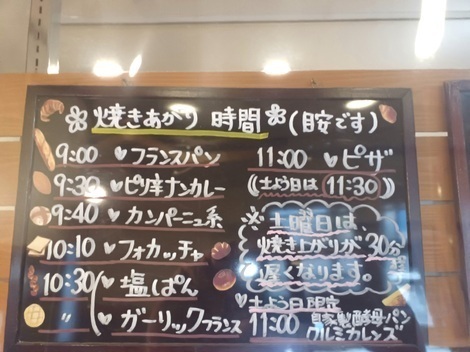 焼きあがり 時間 (目安です)
9:00 ♥フランスパン
9:30 ♥ピリ辛ナンカレー
9:40 ♥カンパーニュ系
10:10 ♥フォカッチャ
10:30 ♥塩ぱん
〃 ♥ガーリックフランス
11:00 ♥ピザ
((土よう日は 11:30))
土曜日は、
焼き上がりが30分程
遅くなります。
♥土よう日限定
11:00 自家製酵母パン
クルミカレンズ